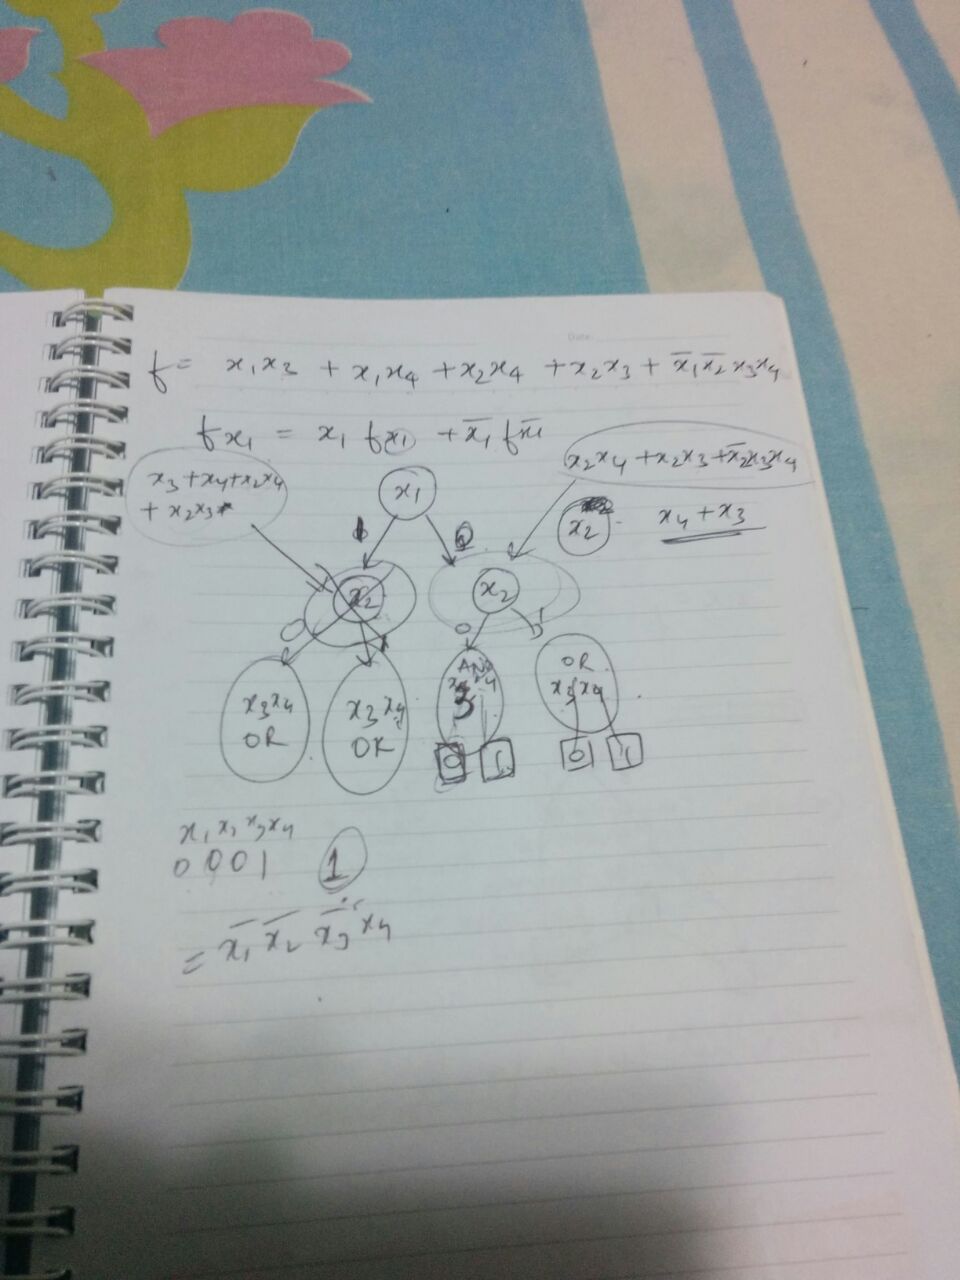 Date:
f = x₁x₃ + x₁x₄ + x₂x₄ + x₂x₃ + x̄₁x̄₂x₃x₄
fx₁ = x₁ fx₁ + x̄₁ fx̄₁
x₃+x₄+x₂x₄
+ x₂x₃
x₁
x₂x₄ + x₂x₃ + x̄₂x₃x₄
x₂
x₄ + x₃
1 0
x₂ x₂
0 1 0 1
x₃x₄
OR
x₃x₄
OR
AND
3
OR
x₃x₄
0 1 0 1
x₁x₂x₃x₄
0001 1
= x̄₁ x̄₂ x̄₃ x₄